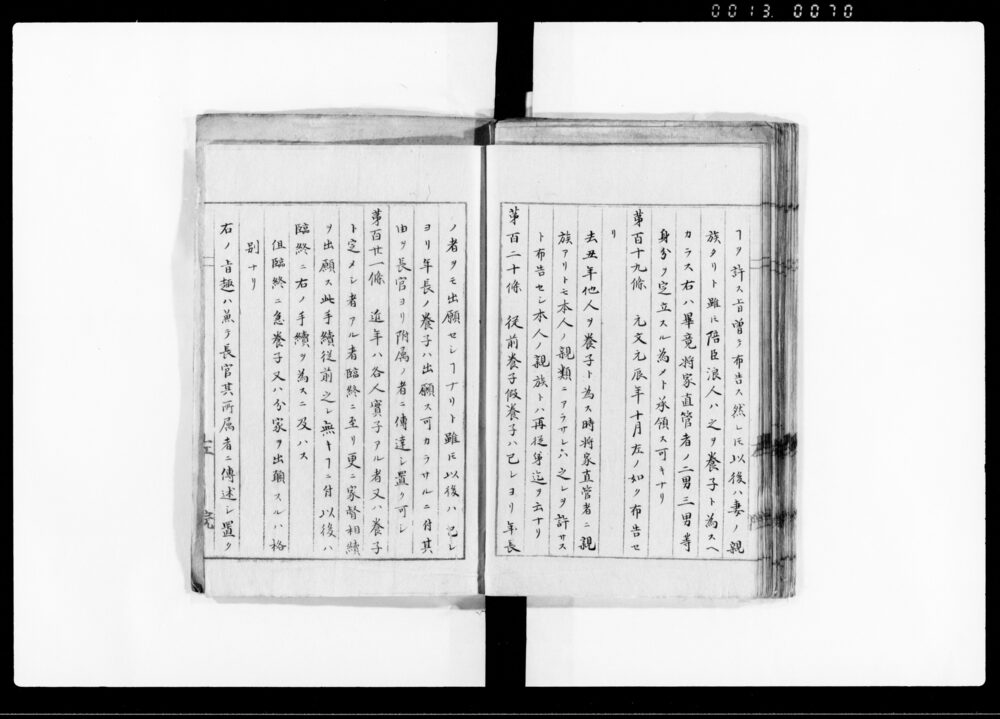 0013.0070
フヲ許ス旨曽テ布告ス然レ𪜈以後ハ妻ノ親
族タリト雖𪜈陪臣浪人ハ之ヲ養子ト為スヘ
カラス右ハ畢竟将家直管者ノ二男三男等
身分ヲ定立スル為メト承領ス可キナリ
第百十九條 元文元辰年十月左ノ如ク布告セ
リ
去丑年他人ヲ養子ト為ス時将家直管者ニ親
族アリトモ本人ノ親類ニアラサレハ之レヲ許サス
ト布告セシ本人ノ親族トハ再従弟迄ヲ云ナリ
第百二十條 従前養子假養子ハ己レヨリ年長
ノ者ヲモ出願セシフナリト雖𪜈以後ハ己レ
ヨリ年長ノ養子ハ出願ス可カラサルニ付其
由ヲ長官ヨリ附属ノ者ニ傳達シ置ク可シ
第百廿一條 近年ハ各人實子アル者又ハ養子
ト定メシ者アル者臨終ニ至リ更ニ家督相續
ヲ出願ス此手續従前之レ無キフニ付以後ハ
臨終ニ右ノ手續ヲ為スニ及ハス
但臨終ニ急養子又ハ分家ヲ出願スルハ格
別ナリ
右ノ旨趣ハ兼テ長官其所属者ニ傳述シ置ク
左院